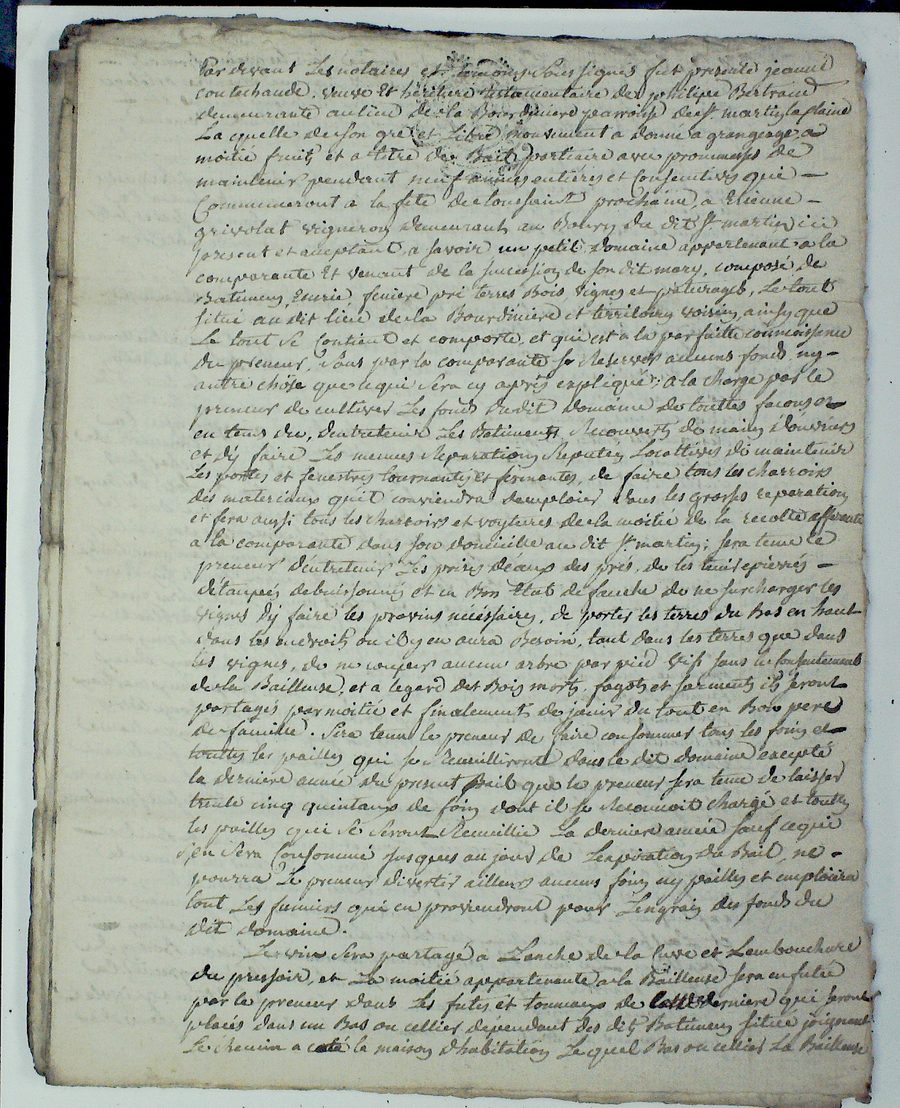 Par devant Les notaires et temoins soussignés fut presente jeanne
coutechaude, veuve Et héritiere testamentaire de philipe Bertrand
demeurante au lieu de la Bourdiniere parroisse de st. martin la plaine
La quelle de son gré et Libre mouvement a donné a grangeage a
moitié fruits et a titre de Bail partiaire avec promesses de
maintenir pendant neuf années entieres et consecutives que –
Commenceront a la fete de toussaint prochaine, a Etienne –
grivolat vigneron demeurant au Bourg du dit st. martin ici
present et acceptant, a savoir un petit domaine appartenant a la
comparante Et venant de la succession de son dit mary, composé de
Batimens, Ecurie feniere pré terres Bois, vignes et paturages, Le tout
situé au dit lieu de la Bourdiniere et territoires voisins, ainsy que
Le tout se Contient et comporte, et qui est a la parfaitte connoissance
du preneur, sans par la comparante se Reserver aucuns fonds ny –
autre chose que ce qui sera cy après expliqué; a la charge par le
preneur de cultiver Les fonds dudit domaine de touttes façons et
en tems du, d'entretenir Les Batiments Recouverts de mains d'ouvriers
et d'y faire Les menues Reparations Reputées Locatives de maintenir
Les portes et fenestres tournantes et fermantes, de faire tous les charrois
des materiaux qu'il conviendra d'emploier dans les grosses reparations
et fera aussi tous les charrois et voytures de la moitié de la recolte afferante
a la comparante dans son domicille au dit st. martin; sera tenu le
preneur d'entretenir Les prises d'eaux des prés, de les tenir épierrés –
détaupés debuissonnés et en Bon Etat de fauche de ne surcharger les
vignes d'y faire les provins nécéssaires, de porter les terres du Bas en haut
dans les endroits ou il y en aura Besoin, tant dans les terres que dans
les vignes, de ne couper aucun arbre par pied vif sans le consentement
de la Bailleuse, et a l'egard des Bois morts, fagots et sarments ils seront
partagés par moitié et finalement de jouir du tout en Bon pere
de famille. Sera tenu le preneur de faire consommer tous les foins et
touttes les pailles qui se Recueilliront dans le dit domaine excepté
la derniere année du present Bail que le preneur sera tenu de laisser
trente cinq quintaux de foin dont il se Reconnoit chargé et touttes
les pailles qui se seront Recueillie La derniere année sauf ce qui
s'en sera Consommé jusques au jour de L'expiration du Bail, ne –
pourra Le preneur divertir ailleurs aucuns foins ny pailles et emploiera
tout Les fumiers qui en proviendront pour L'engrais des fonds du
dit domaine.
Le vin sera partagé a L'anche de la cuve et L'embouchure
du pressoir, et La moitié appartenante a la Bailleuse sera enfutée
par le preneur dans Les futes et tonneaux de cette derniere qui seront
placés dans un Bas ou cellier dependant des dits Batimens située joignant
Le chemin a coté la maison d'habitation, Lequel Bas ou cellier La Bailleuse